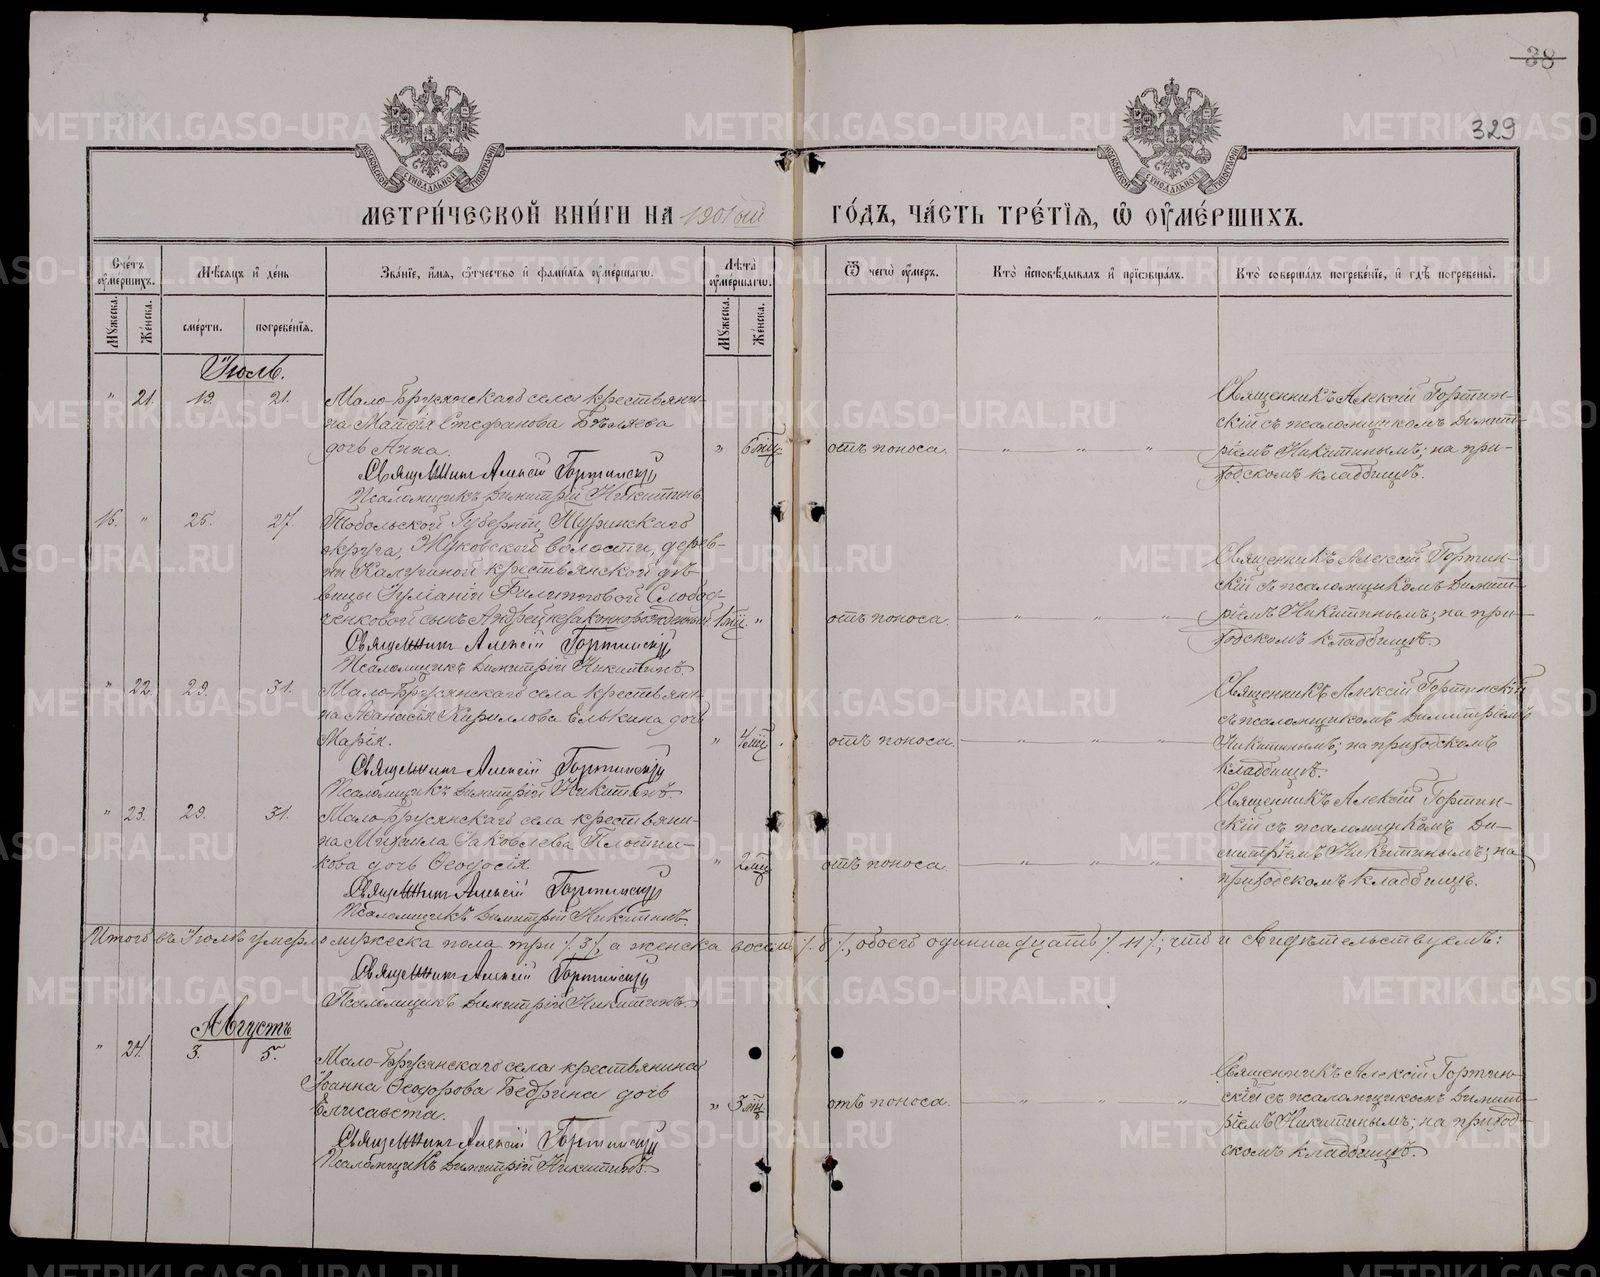 38
329
МЕТРИ́ЧЕСКОЙ КНИ́ГИ НА 1901ый ГО́ДЪ, ЧА́СТЬ ТРЕ́ТІѦ, Ѡ ОУМЕ́РШИХЪ.
Сче́тъ оумершихъ.
Му́жеска.
Же́нска.
Мѣсяцъ и де́нь
сме́рти.
погребе́нія.
Зва́ніе, и́мя, о́тчество и фами́лія оуме́ршагѡ.
Лѣта оуме́ршагѡ.
Му́жеска.
Же́нска.
Ѿ чегѡ оу́меръ.
Кто̀ и҆сповѣ́дывалъ и҆ прїѡбща́лъ.
Кто̀ соверша́лъ погребе́нїе, и҆ гдѣ̀ погребены̀.
Іюль.
" 21. 19. 21. Мало-Брусянскаго села крестьяни-
на Матѳія Стефанова Бѣляева
дочь Анна. " 6 мц. отъ поноса. " " "
Священникъ Алексій Гортинскій
Псаломщикъ Димитрій Никитинъ
Священникъ Алексій Гортин-
скій съ псаломщикомъ Димит-
ріемъ Никитинымъ; на при-
ходскомъ кладбищѣ.
16. " 25. 27. Тобольской Губерніи, Туринскаго
округа, Жуковской волости, дерев-
ни Калугиной крестьянской дѣ-
вицы Іуліаніи Филипповой Слобод-
чиковой сынъ Андрей, незаконнорожденный 1 мц. " отъ поноса. " " "
Священникъ Алексій Гортинскій
Псаломщикъ Димитрій Никитинъ.
Священникъ Алексій Гортин-
скій съ псаломщикомъ Димит-
ріемъ Никитинымъ; на при-
ходскомъ кладбищѣ.
" 22. 29. 31. Мало-Брусянскаго села крестьяни-
на Аѳанасія Кириллова Елькина дочь
Марія. " 4 мц. отъ поноса. " " "
Священникъ Алексій Гортинскій
Псаломщикъ Димитрій Никитинъ.
Священникъ Алексій Гортинскій
съ псаломщикомъ Димитріемъ
Никитинымъ; на приходскомъ
кладбищѣ.
" 23. 29. 31. Мало-Брусянскаго села крестьяни-
на Михаила Іаковлева Плотни-
кова дочь Ѳеодосія. " 2 мц. отъ поноса. " " "
Священникъ Алексій Гортинскій
Псаломщикъ Димитрій Никитинъ.
Священникъ Алексій Гортин-
скій съ псаломщикомъ Ди-
митріемъ Никитинымъ; на
приходскомъ кладбищѣ.
Итого въ Іюлѣ умерло мужеска пола три /. 3 /, а женска восемь /. 8 /., обоего одиннадцать /. 11 /; что и свидѣтельствуемъ:
Священникъ Алексій Гортинскій
Псаломщикъ Димитрій Никитинъ.
Августъ
" 24. 3. 5. Мало-Брусянскаго села крестьянина
Іоанна Ѳеодорова Бедрина дочь
Елисавета. " 3 мц. отъ поноса. " " "
Священникъ Алексій Гортинскій
Псаломщикъ Димитрій Никитинъ.
Священникъ Алексій Гортин-
скій съ псаломщикомъ Димит-
ріемъ Никитинымъ; на приход-
скомъ кладбищѣ.
METRIKI.GASO-URAL.RU